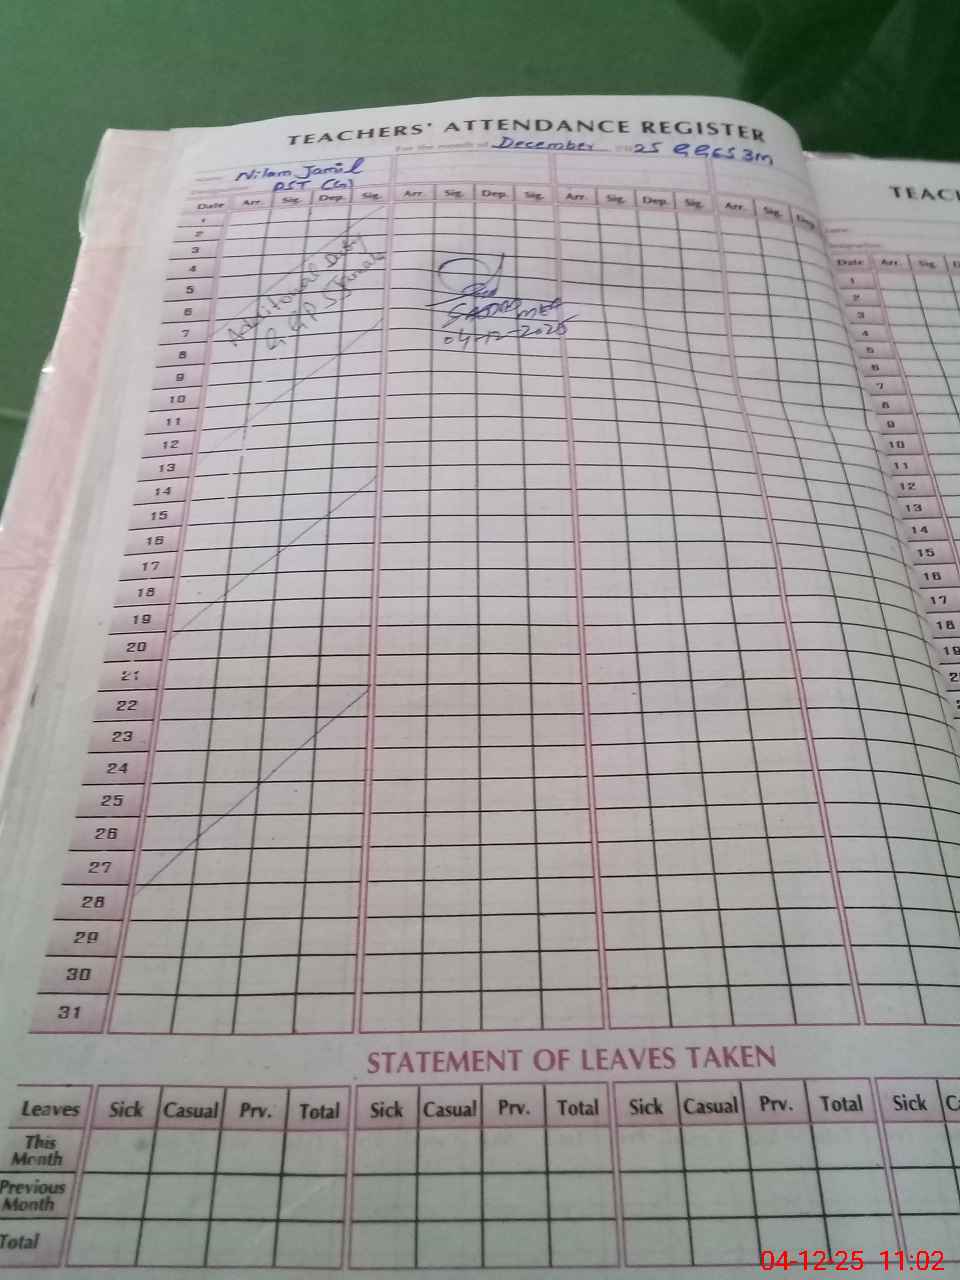 TEACHERS' ATTENDANCE REGISTER
For the month of December 2025 GGCS 3M
Nilam Jamil
Designation PST (G)
Date Arr. Sig. Dep. Sig. Arr. Sig. Dep. Sig. Arr. Sig. Dep. Sig. Arr. Sig. Dep.
1
2
3
4
5
6
7
8
9
10
11
12
13
14
15
16
17
18
19
20
21
22
23
24
25
26
27
28
29
30
31
Additional Duty
04-12-2025
STATEMENT OF LEAVES TAKEN
Leaves Sick Casual Prv. Total Sick Casual Prv. Total Sick Casual Prv. Total Sick
This Month
Previous Month
Total
TEACH
Name
Designation
Date Arr. Sig. D
1
2
3
4
5
6
7
8
9
10
11
12
13
14
15
16
17
18
19
04-12-25 11:02